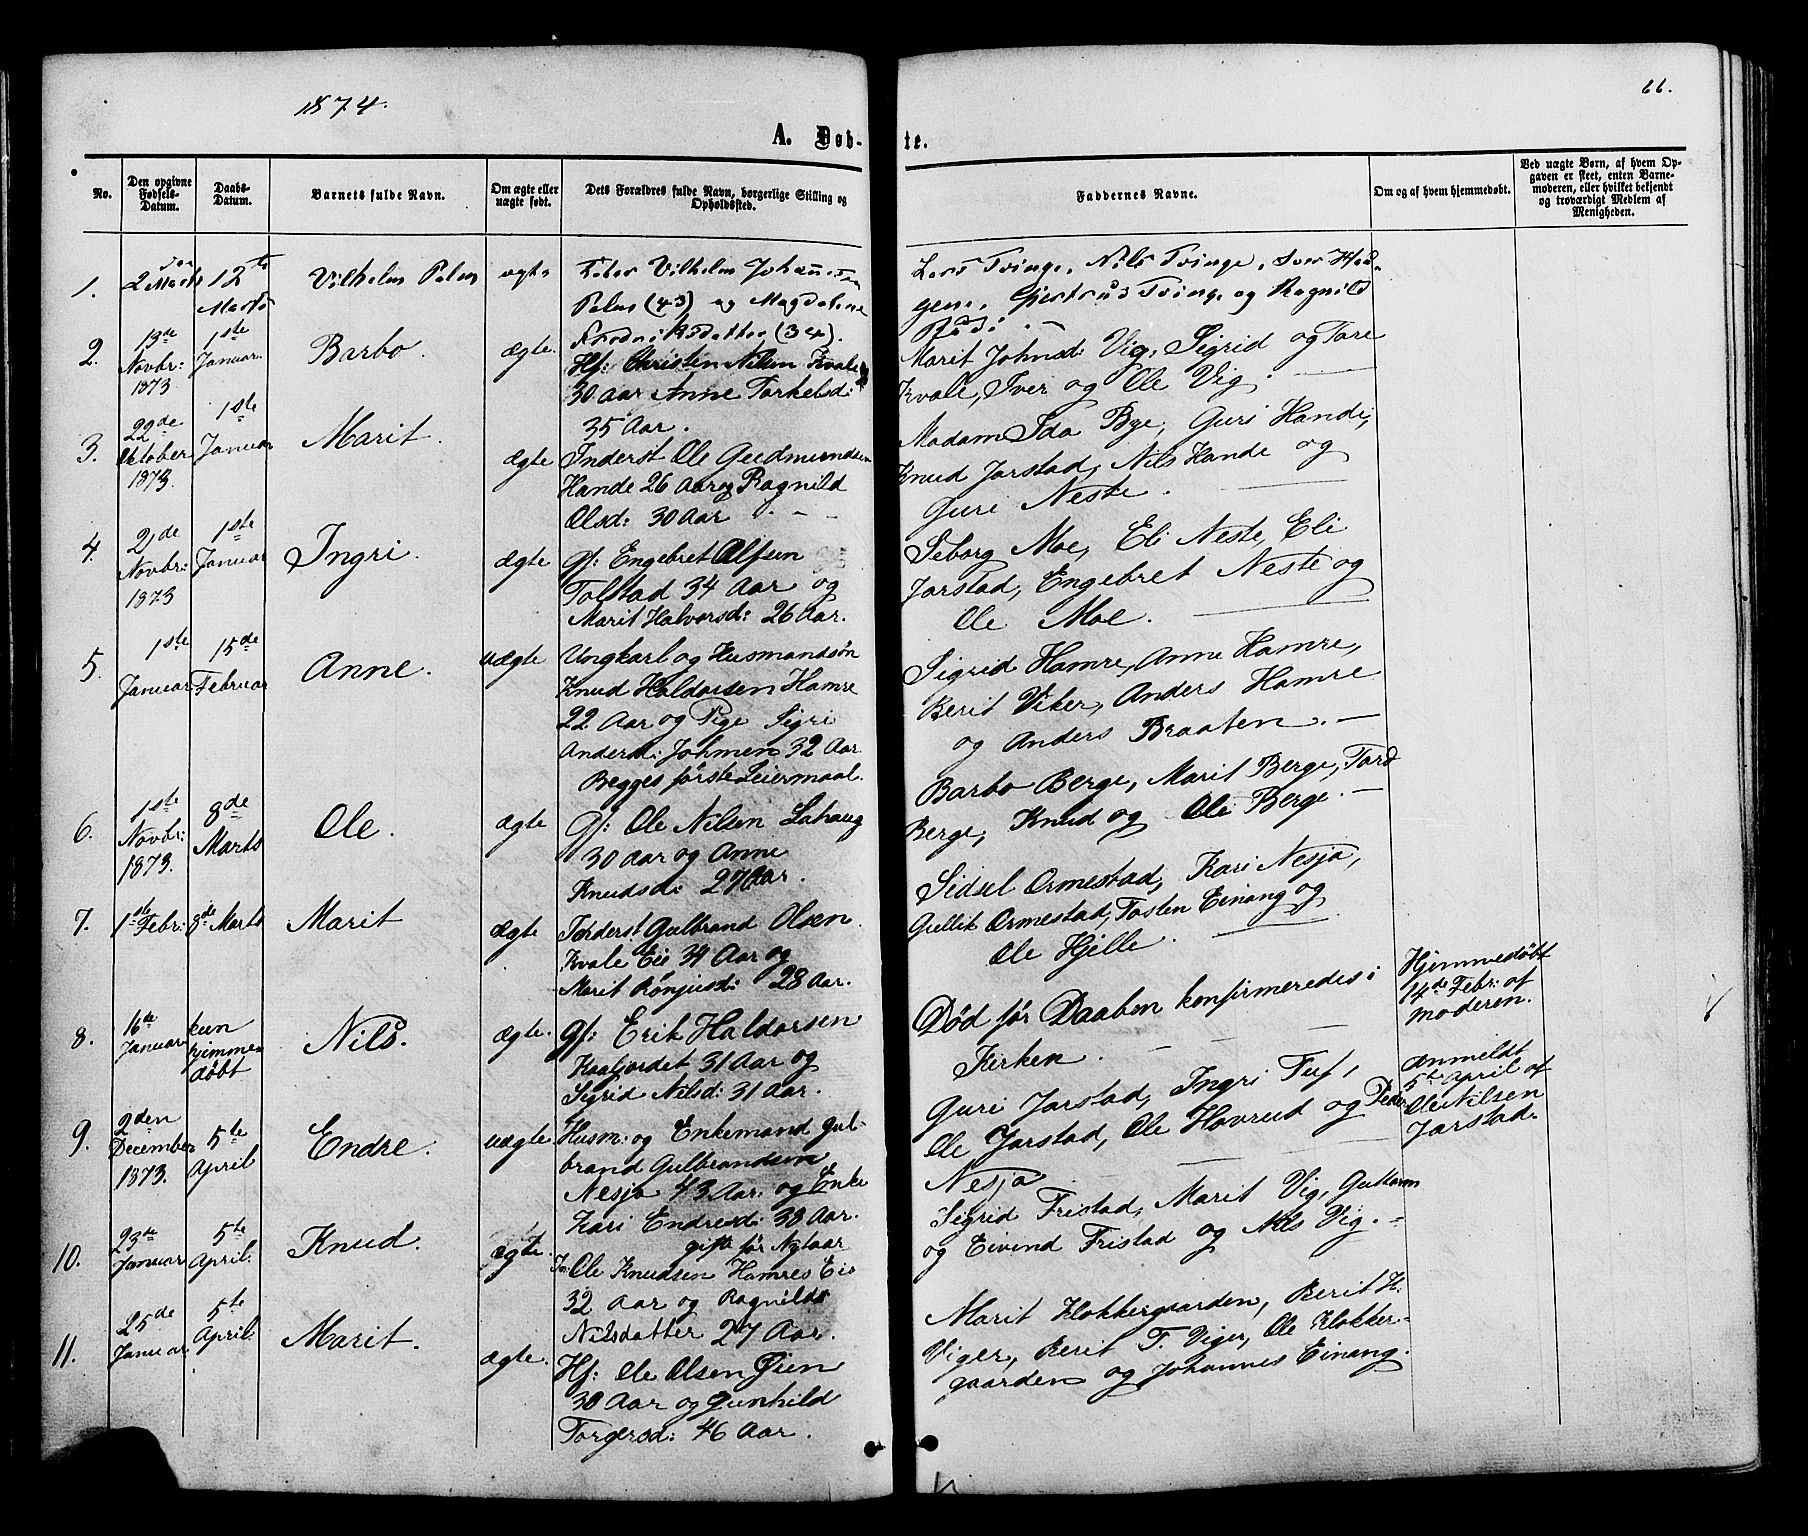 1874.
66.
A. Døb-
te.
No.
Den opgivne Fødsels-Datum.
Daabs-Datum.
Barnets fulde Navn.
Om ægte eller uægte født.
Dets Forældres fulde Navn, borgerlige Stilling og Opholdssted.
Faddernes Navne.
Om og af hvem hjemmedøbt.
Ved uægte Børn, af hvem Opgaven er skeet, enten Barnemoderen, eller hvilket bekjendt og troværdigt Medlem af Menigheden.
1.
2den Marts
12te Marts
Vilhelm
ægte
Vilhelm
(43) og Magdalene
(34).
Lars Tvinge, Nils Tvinge, Iver
Gjertrud Tvinge og Ragnild
2.
13de Novbr: 1873
1ste Januar.
Barbo.
ægte.
Hf: Christen Nilsen Kvale
30 aar Anne Torkelsd:
35 Aar.
Marit Johnsd: Vig, Sigrid og Tore
Kvale, Iver og Ole Vig.
3.
22de Oktober 1873.
1ste Januar
Marit.
Ægte
Inderst Ole Gudmundsen
Hande 26 Aar og Ragnild
Olsd: 30 Aar
Madam Ida Bye, Guri Hande,
Knud Jarstad, Nils Hande og
Guri Neste.
4.
2de Novbr: 1873
1ste Januar
Ingri.
Ægte
Gf: Engebret Olsen
Tolstad 34 Aar og
Marit Halvorsd: 26 Aar.
Seborg Moe, Eli Neste, Eli
Jarstad, Engebret Neste og
Ole Moe.
5.
1ste Januar
15de Februar
Anne.
uægte
Ungkarl og Husmandsøn
Knud Haldorsen Hamre
22 Aar og Pige Sigri
Andersd: Johmen 32 Aar
Begges første Leiermaal.
Sigrid Hamre, Anne Hamre,
Berit Viker, Anders Hamre
og Anders Braaten.
6.
1ste Novbr: 1873.
8de Marts
Ole.
ægte
Gf: Ole Nilsen Lahaug
30 Aar og Anne
Knudsd: 27 Aar.
Barbo Berge, Marit Berge, Tord
Berge, Knud og Ole Berge.
7.
1ste Febr:
8de Marts
Marit
ægte
Inderst Gulbrand Olsen
Kvale Eie 34 Aar og
Marit Rønjusd: 28 Aar.
Sidsel Ormestad, Kari Nesja,
Gullik Ormestad, Tosten Einang og
Ole Hjelle.
8.
16de Januar
kun hjemmedøbt
Nils.
ægte.
Gf: Erik Haldorsen
31 Aar og
Sigrid Nilsd: 31 Aar.
Død før Daaben konfirmeredes i
Kirken.
Hjemmedøbt
14de Febr: af
moderen.
9.
2den December 1873.
5te April
Endre.
uægte
Husm: og Enkemand Gul-
brand Gulbrandsen
Nesja 43 Aar og Enke
Kari Endresd: 38 Aar.
gift før Nytaar
Guri Jarstad, Ingri Tuf,
Ole Jarstad, Ole Hovrud og Peder
Nesja
Anmeldt
5te April af
Ole Nilsen
Jarstad.
10.
23de Januar
5te April.
Knud.
ægte.
In: Ole Knudsen Hamres Eie
32 Aar og Ragnild
Nilsdatter 27 Aar.
Sigrid Fristad, Marit Vig, Guttorm
og Eivend Fristad og Nils Vig.
11.
25de Januar.
5te April.
Marit.
ægte.
Hf: Ole Olsen Øien
30 Aar og Gunhild
Torgersd: 46 Aar.
Marit Klokkergaarden, Berit H:
Viger, Berit T. Viger, Ole Klokker-
gaarden og Johannes Einang.